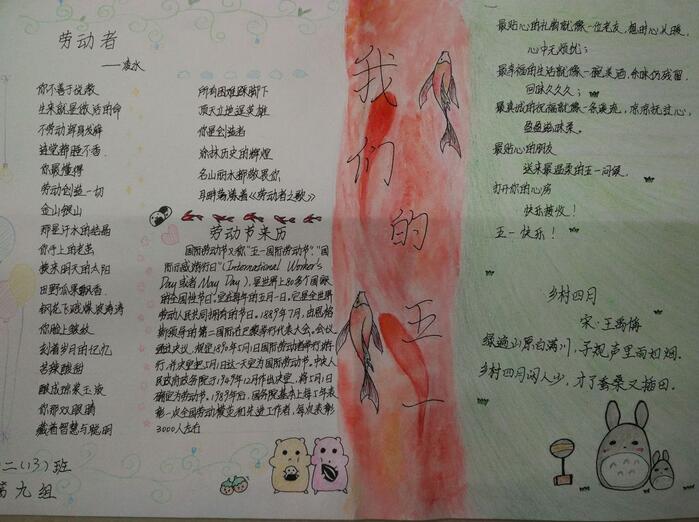 劳动者
——凌水
你不善于说教
生来就是做活的命
不劳动浑身发解
连觉都睡不香
你最懂得
劳动创造一切
金山银山
那是汗水的结晶
你手上的老茧
接来明天的太阳
田野瓜果飘香
钢花飞溅爆浪涛涛
你脸上皱纹
刻着岁月的记忆
苦辣酸甜
酿成琼浆玉液
你那双眼睛
藏着智慧与聪明
二(13)班
第九组
所有困难踩脚下
顶天立地逞英雄
你是创造者
涂抹历史的辉煌
名山丽水都敬畏你
耳畔荡漾着《劳动者之歌》
劳动节来历
国际劳动节又称"五一国际劳动节""国
际示威游行日"(International Worker's
Day或者May Day),是世界上80多个国家
的全国性节日。定在每年的五月一日。它是全世界
劳动人民共同拥有的节日。1889年7月,由恩格
斯领导的第二国际在巴黎举行代表大会。会议
通过决议,规定1890年5月1日国际劳动者举行游
行,并决定把5月1日这一天定为国际劳动节。中央人
民政府政务院于1949年12月作出决定,将5月1日
确定为劳动节。1989年后,国务院基本上每5年表
彰一次全国劳动模范和先进工作者,每次表彰
3000人左右
我们的五一
最贴心的礼物就像一位老友,想时心头暖,
心中无烦忧;
最幸福的生活就像一碗美酒,余味仍残留
回味久久久;
最真诚的祝福就像一条溪流,凉凉抚过心,
盈盈滋味柔。
最贴心的朋友
送来最温柔的五一问候,
打开你的心房
快乐接收!
五一快乐!
乡村四月
宋·王禹偁
绿遍山原白满川,子规声里雨如烟.
乡村四月闲人少,才了蚕桑又插田.